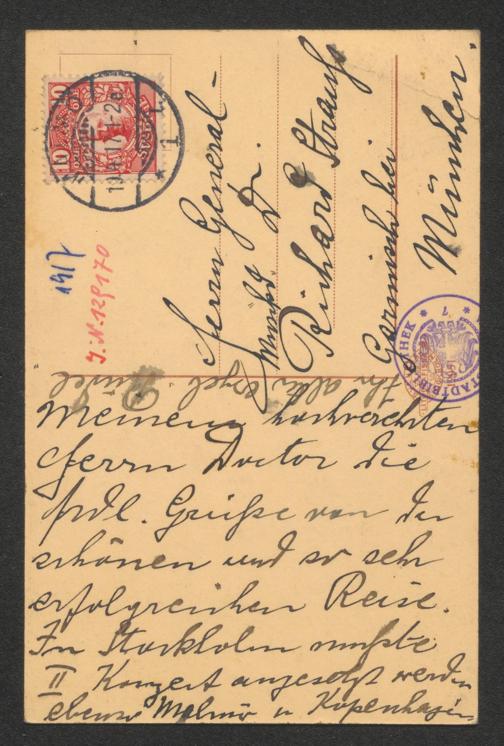 Herrn General-
Musikd. Dr.
Richard Strauss
Garmisch bei
München.
10
10
SVERIGE
1
1917
J.N. 129170
STADTBIBLIOTHEK
* 7 *
Meinem hochverehrten
Herrn Doctor die
frdl. Grüße von der
schönen und so sehr
erfolgreichen Reise.
In Stockholm mußte
II Konzert angesetzt werden
ebenso Malmö u Kopenhagen
Ihr alter ergeb.